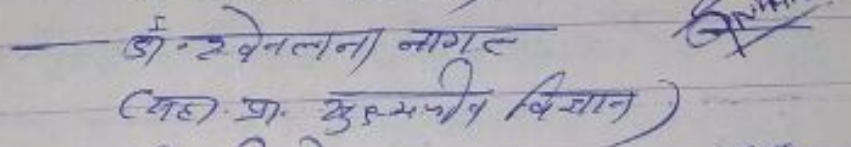 डॉ. श्वेतलाना नागल
(सहा. प्रा. सुक्ष्मजीव विज्ञान)